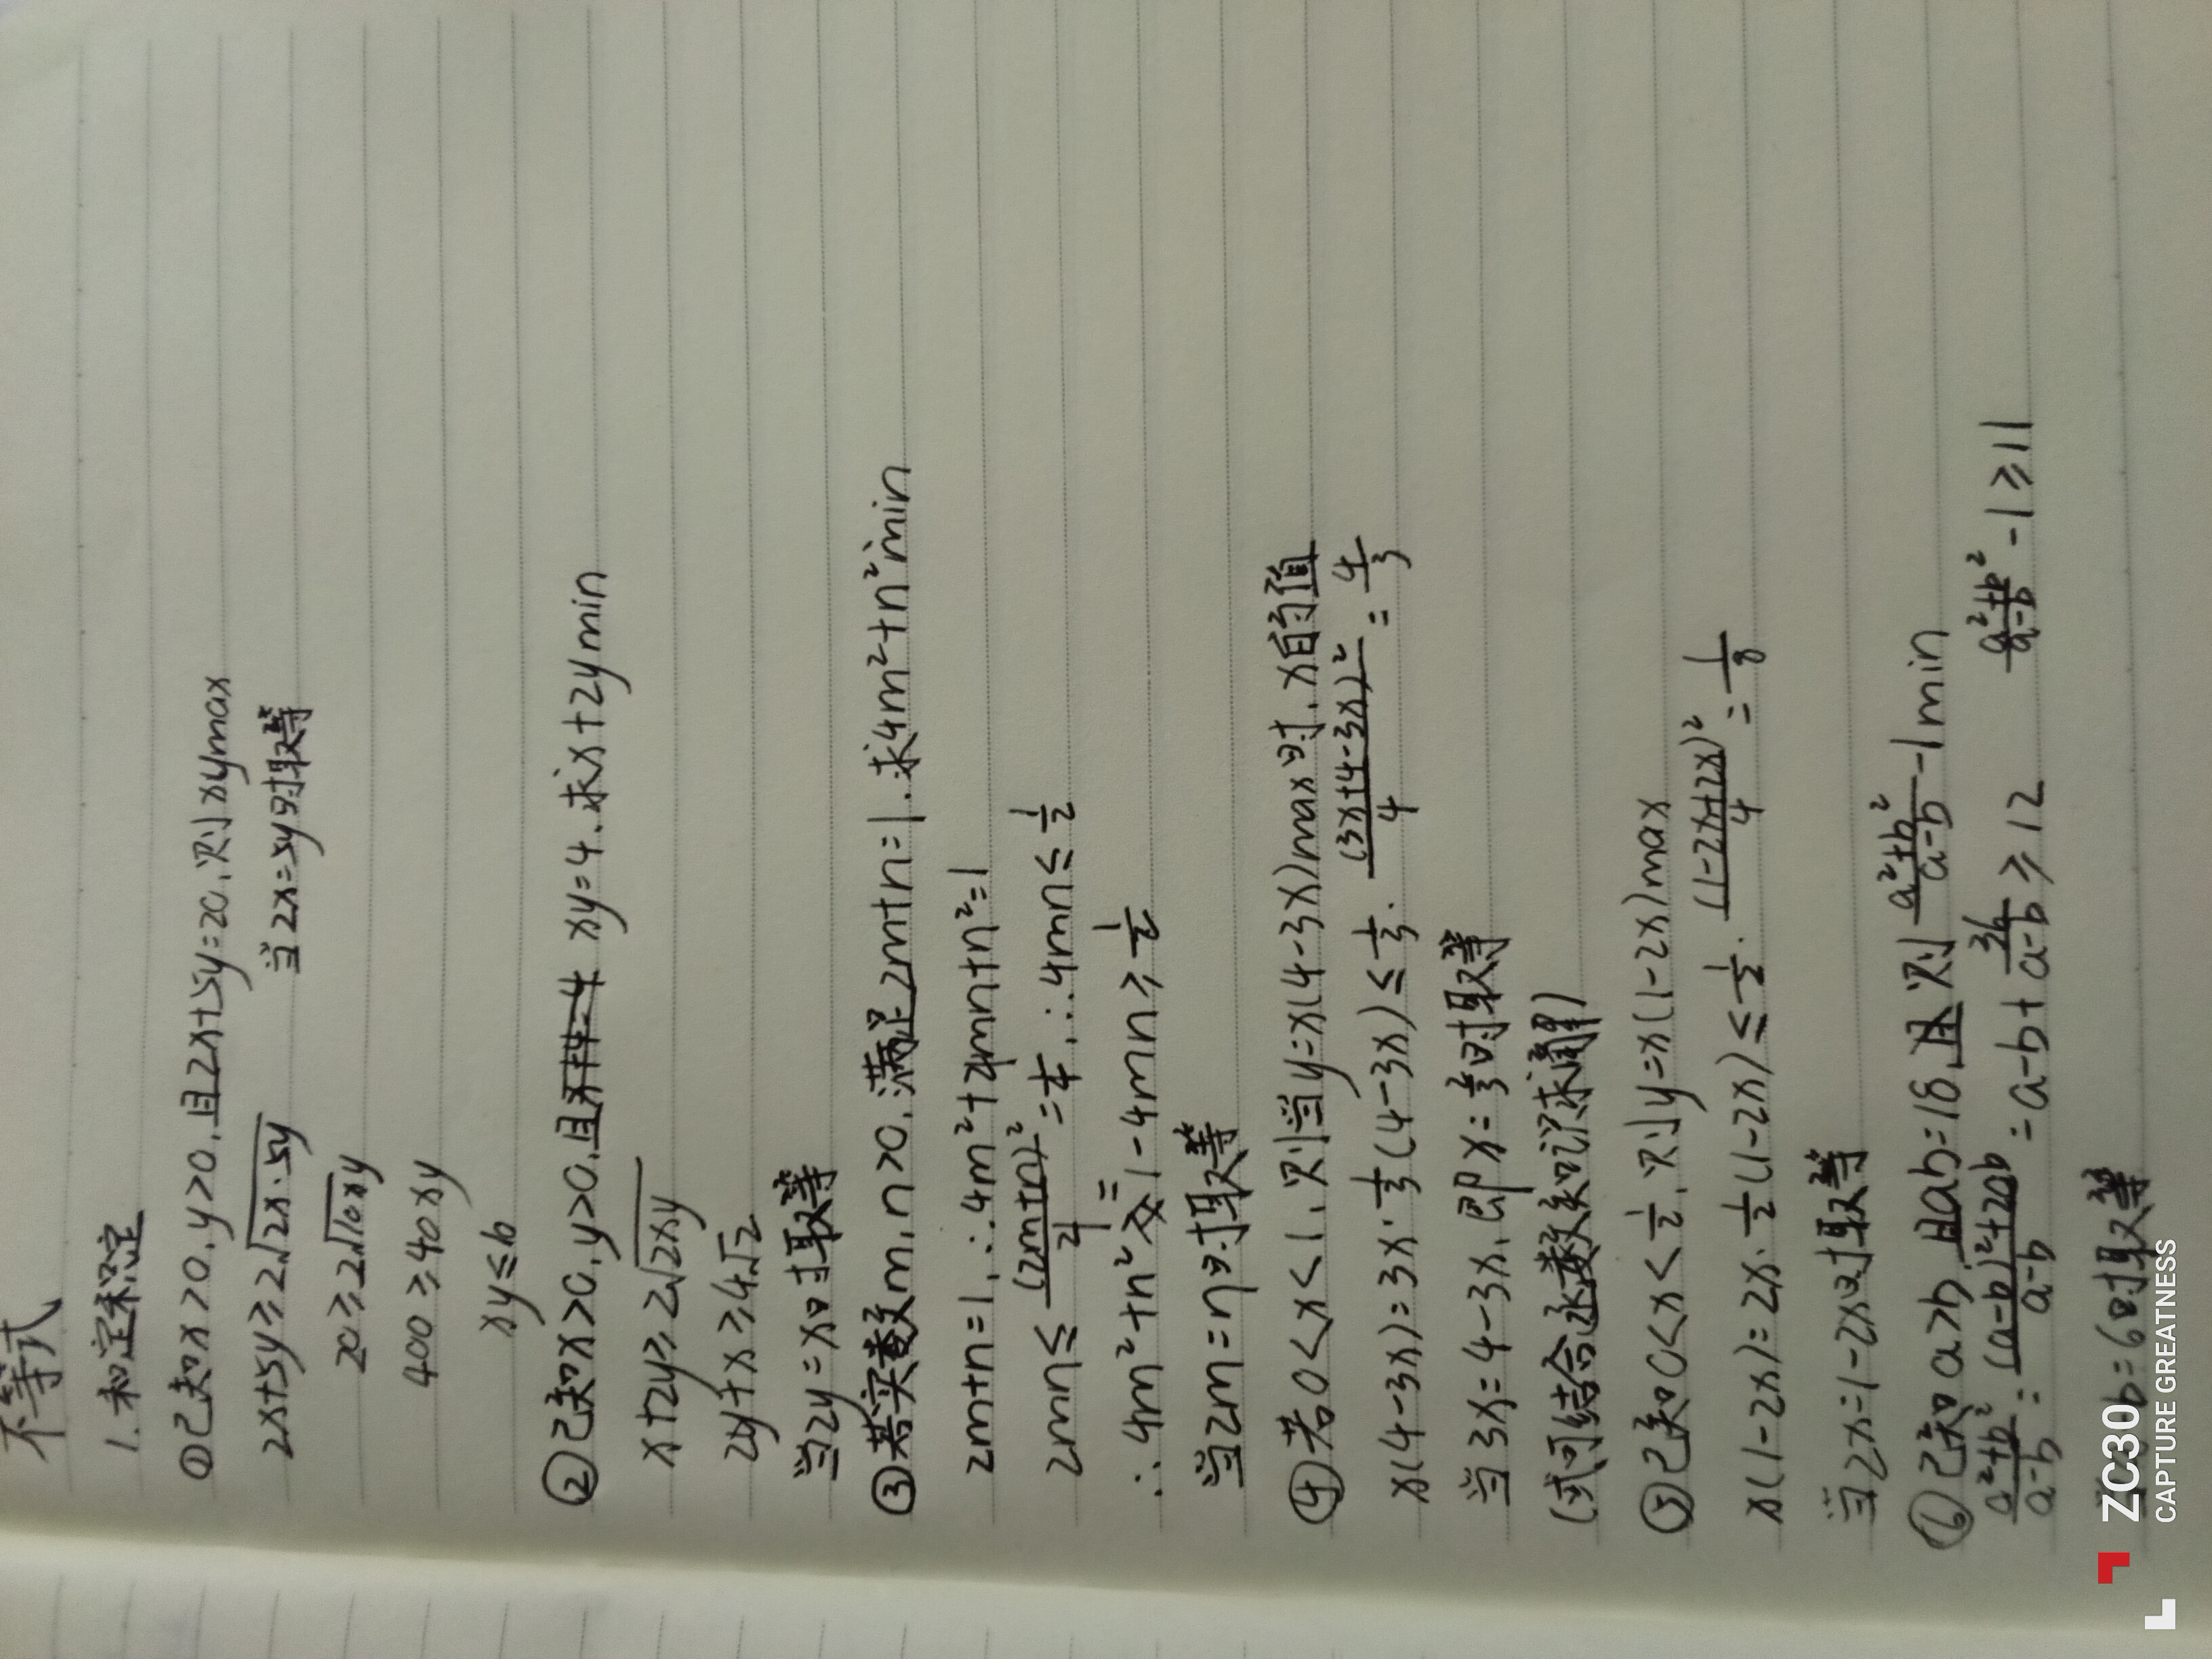 不等式
1.和定积定
①已知x>0,y>0,且2x+5y=20,则xymax
2x+5y≥2√(2x·5y) 当2x=5y时取等
20≥2√(10xy)
400≥40xy
xy≤10
②已知x>0,y>0,且 xy=4.求x+2ymin
x+2y≥2√(2xy)
2y+x≥4√2
当2y=x时取等
③若实数m,n>0,满足2m+n=1.求4m²+n²min
2m+n=1,∴4m²+4mn+n²=1
2mn≤(2m+n)²/4=1/4,∴4mn≤1/2
∴4m²+n²=1-4mn≥1/2
当2m=n时取等
④若0<x<1,则当y=x(4-3x)max时,x的值
x(4-3x)=3x·1/3(4-3x)≤1/3·(3x+4-3x)²/4=4/3
当3x=4-3x,即x=2/3时取等
(或可结合函数知识求解)
⑤已知0<x<1/2,则y=x(1-2x)max
x(1-2x)=2x·1/2(1-2x)≤1/2·(1-2x+2x)²/4=1/8
当2x=1-2x时取等
⑥已知a>b,且ab=18,则(a²+b²)/(a-b)-1min
(a²+b²)/(a-b)=((a-b)²+2ab)/(a-b)=a-b+36/(a-b)≥12 (a²+b²)/(a-b)-1≥11
b=6时取等
ZC30
CAPTURE GREATNESS